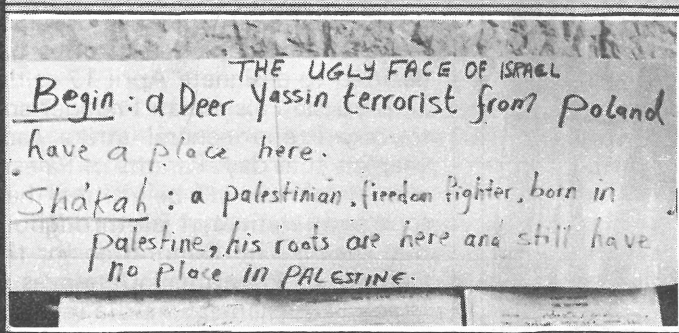 THE UGLY FACE OF ISRAEL
Begin : a Deer Yassin terrorist from Poland
have a place here.
Sha'kah : a palestinian, freedom fighter, born in
palestine, his roots are here and still have
no place in PALESTINE.